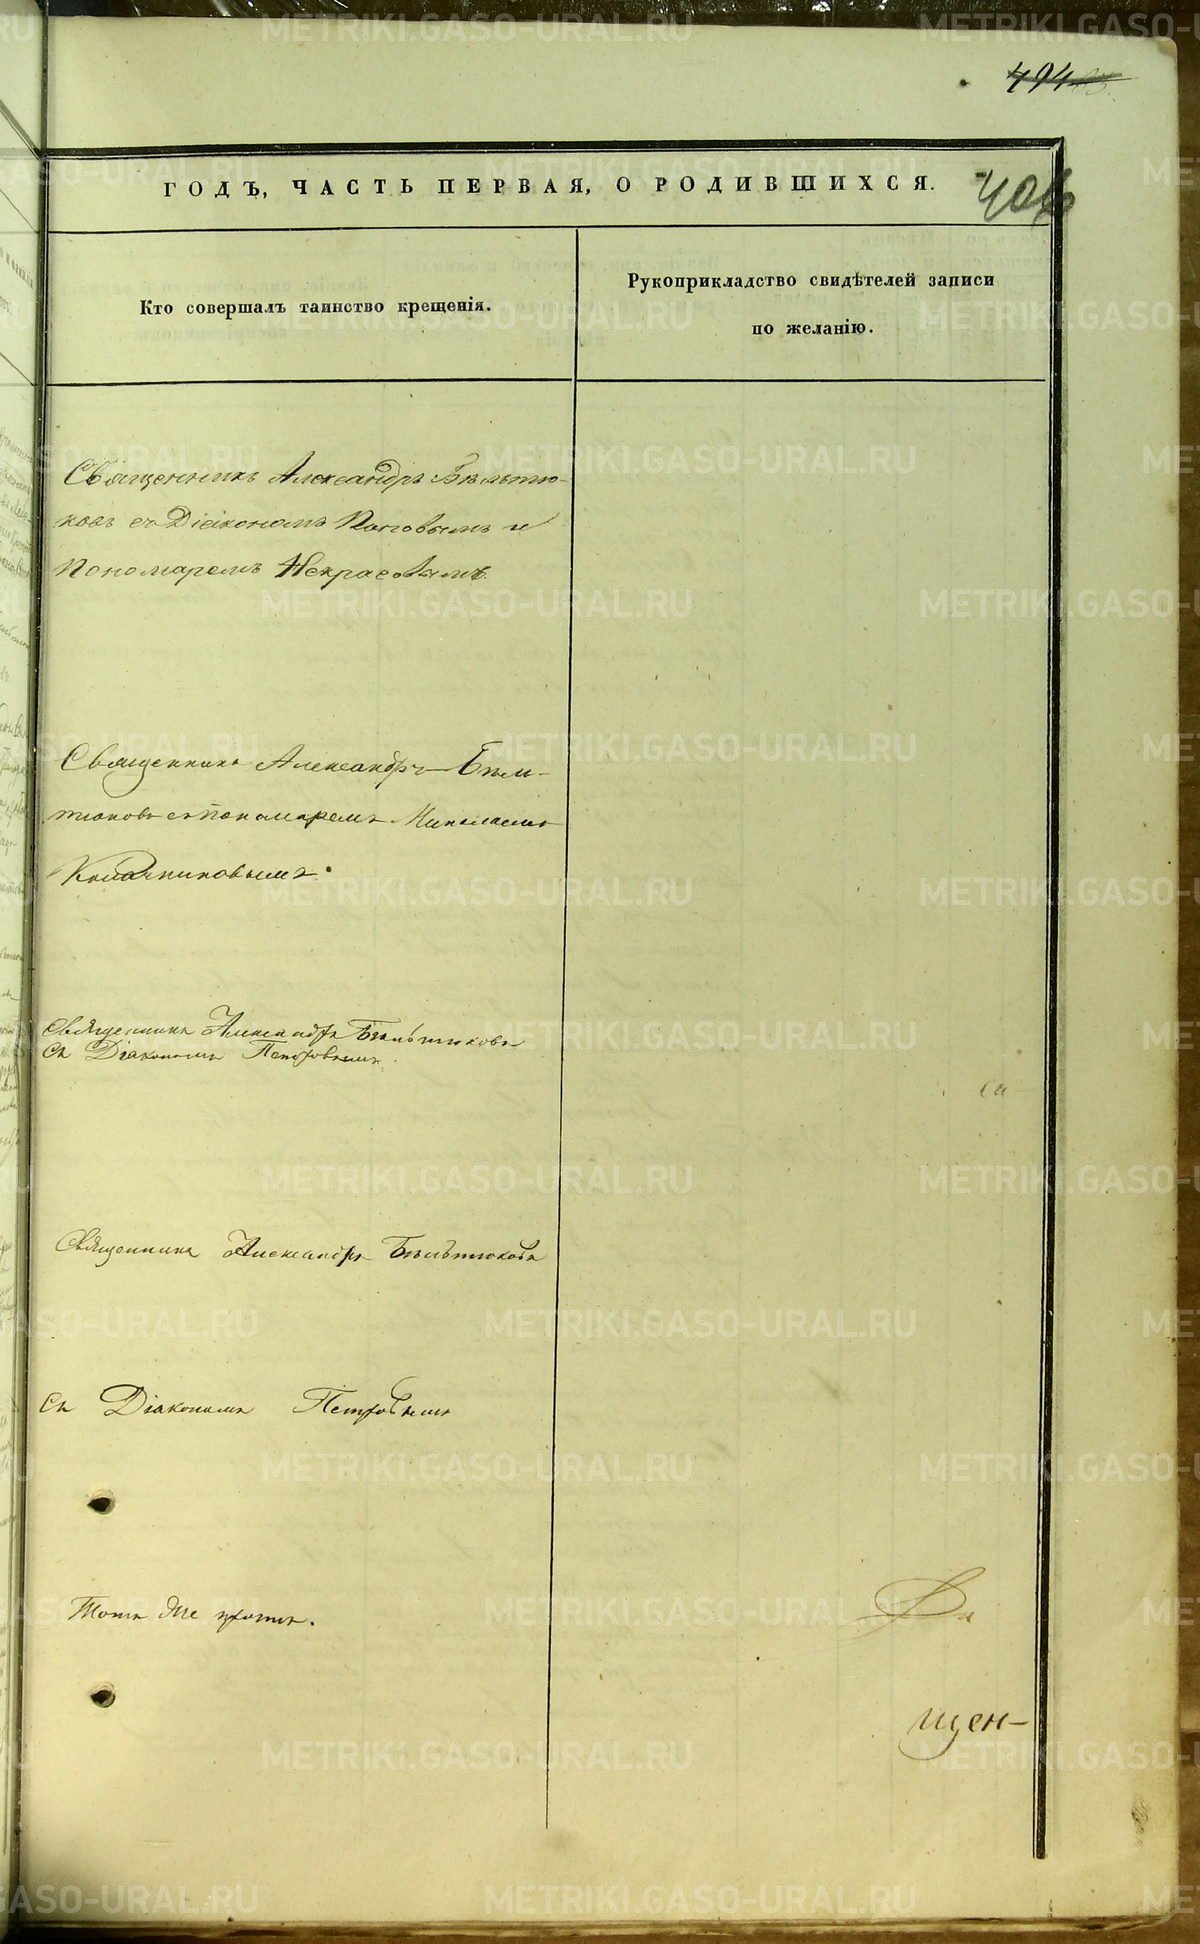 494
ГОДЪ, ЧАСТЬ ПЕРВАЯ, О РОДИВШИХСЯ.
406
Кто совершалъ таинство крещенія.
Рукоприкладство свидѣтелей записи
по желанію.
Священникъ Александръ Бѣльтю-
ковъ съ Діакономъ Поповымъ и
Пономаремъ Некрасовымъ
Священникъ Александръ Бѣль-
тюковъ съ пономаремъ Николаемъ
Священникъ Александръ Бѣльтюковъ
Съ Діакономъ Петровымъ.
Священникъ Александръ Бѣльтюковъ
Съ Діакономъ Петровымъ
Тотъ же причтъ.
щен-
METRIKI.GASO-URAL.RU